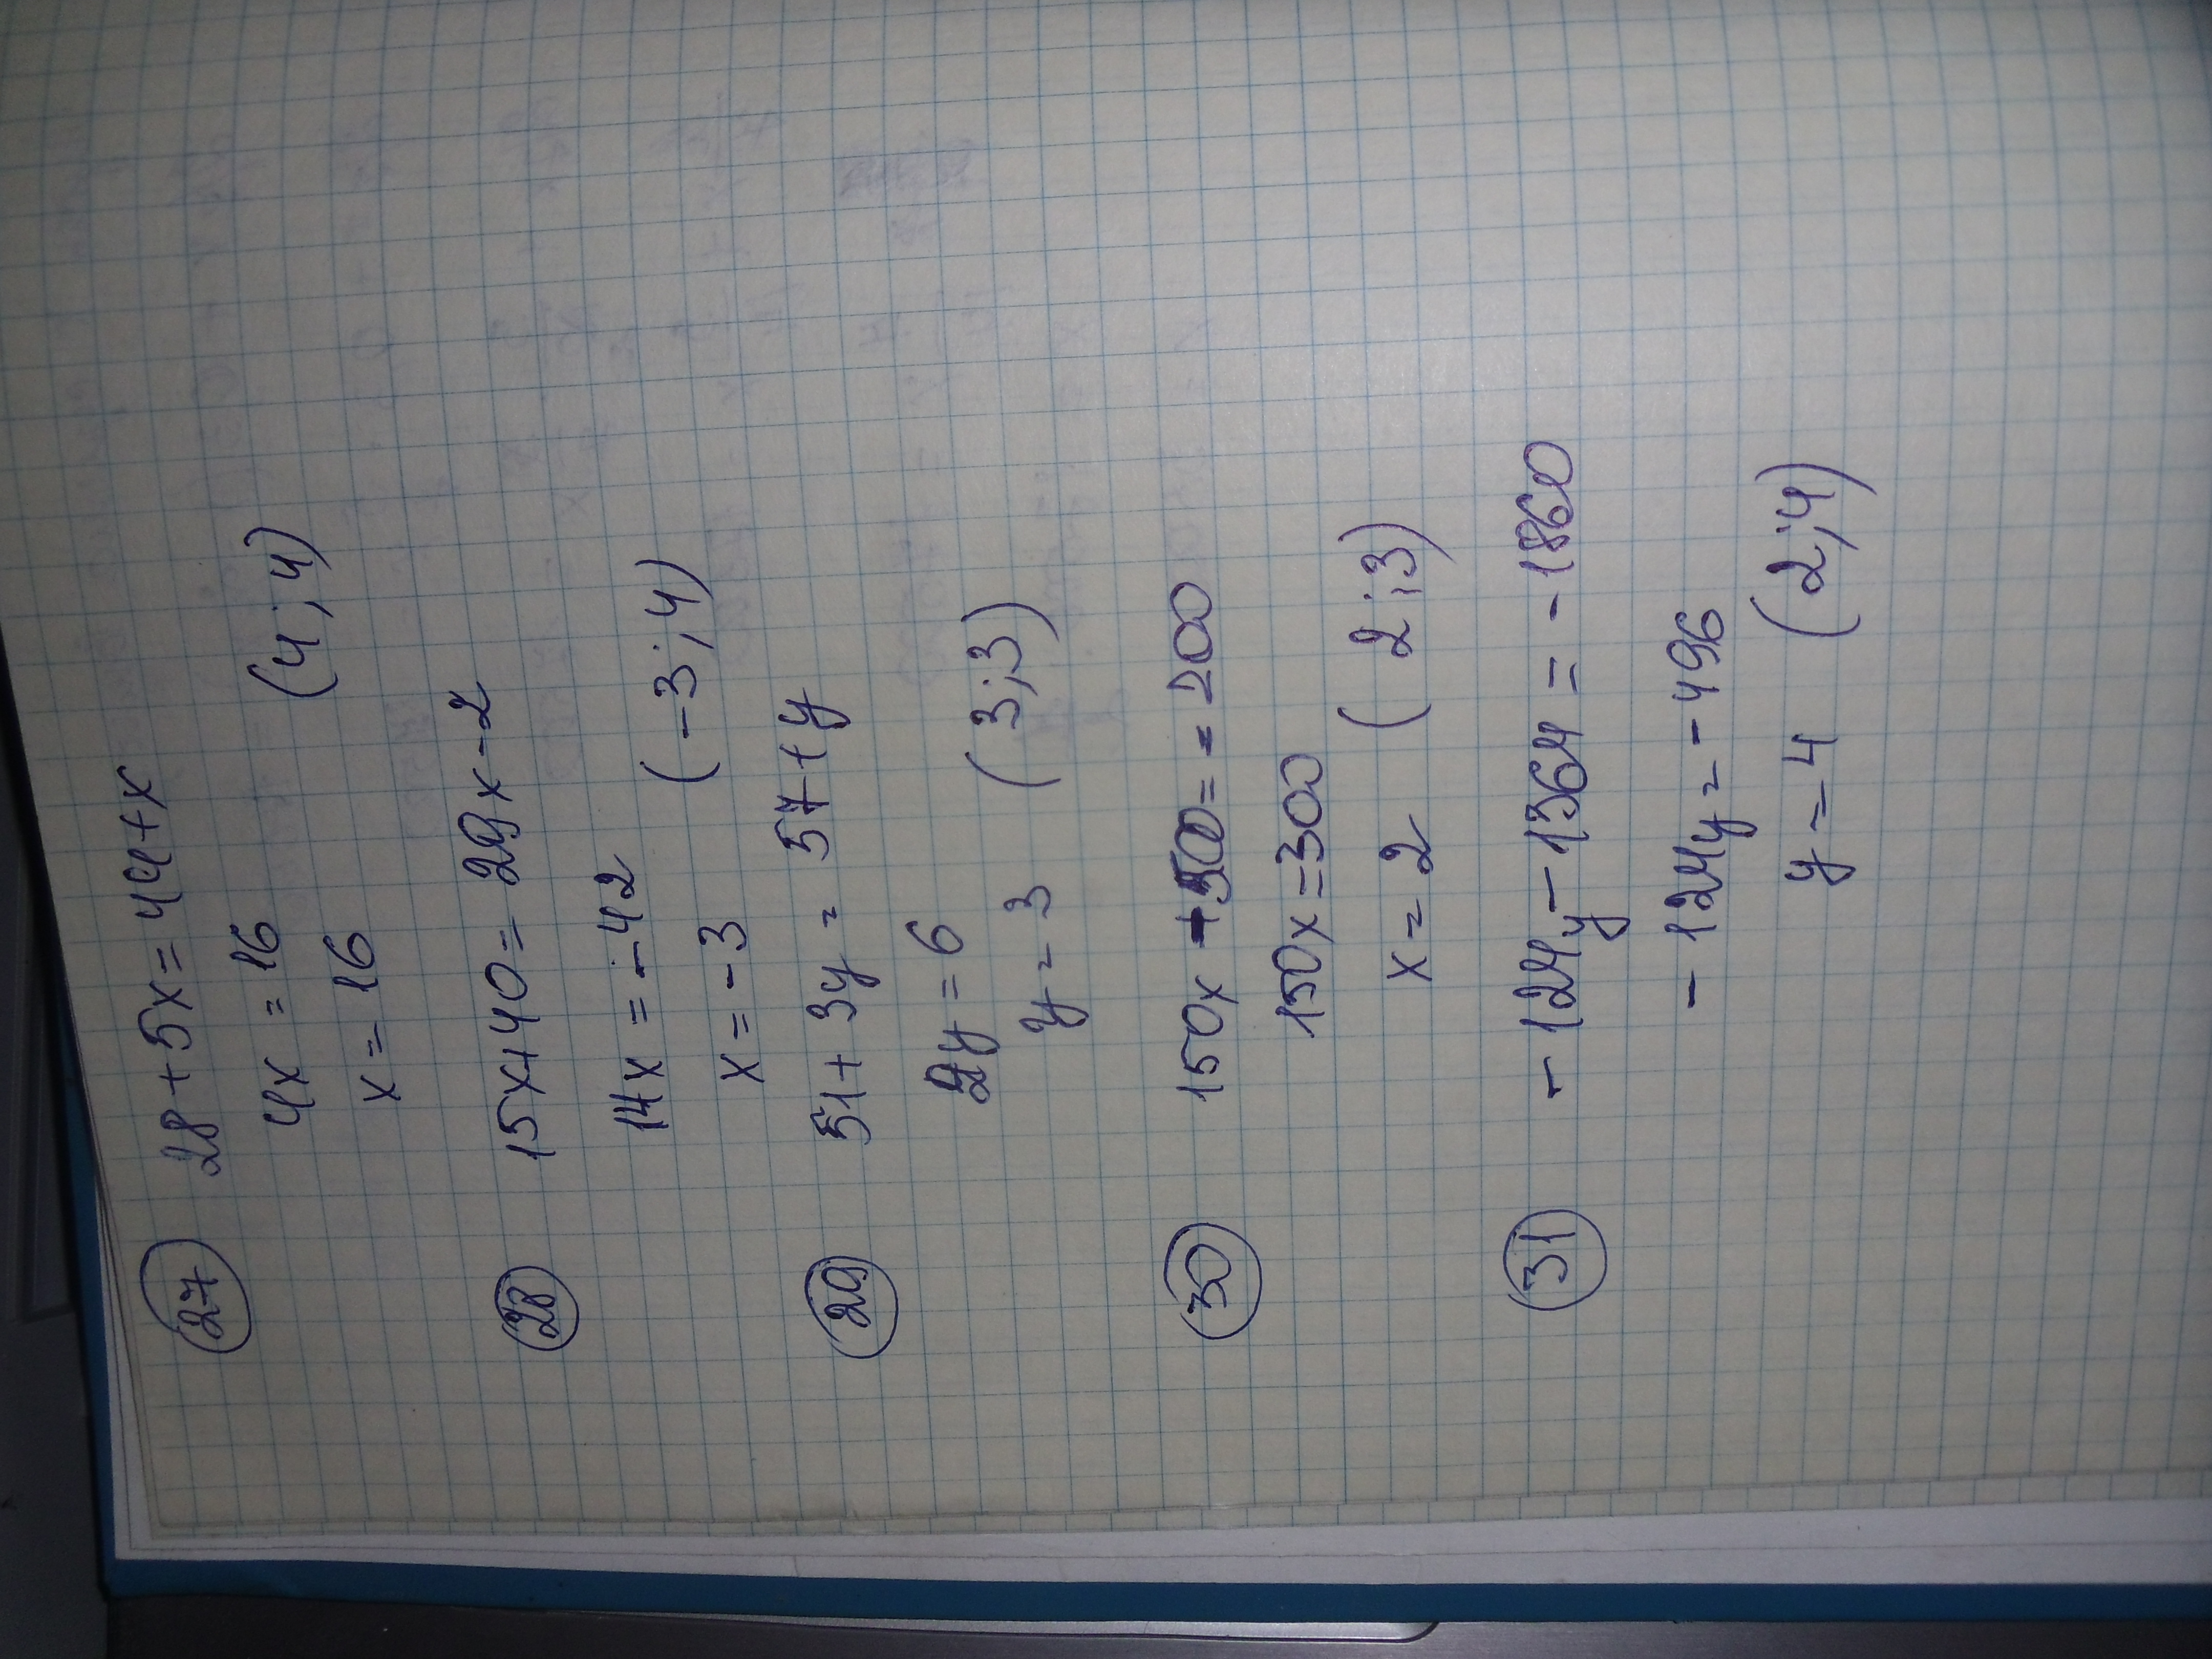 27 28 + 5x = 44 + x
4x = 16 (4 ; 4)
x = 16
28 15x + 40 = 29x - 2
14x = - 42 (-3 ; 4)
x = - 3
29 51 + 3y = 57 + y
2y = 6 (3 ; 3)
y = 3
30 150x + 500 = 200
150x = 300
x = 2 (2 ; 3)
31 - 124y - 1364 = - 1860
- 124y = - 496
y = 4 (2 ; 4)